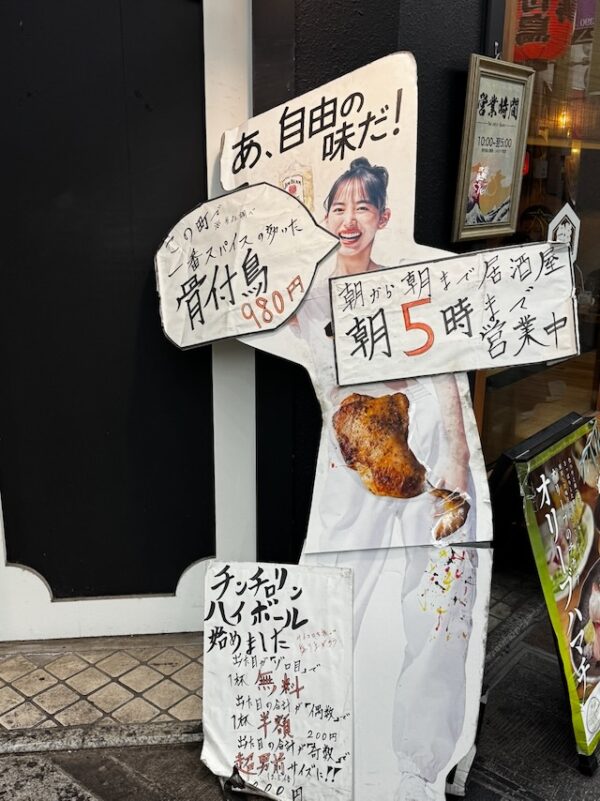 あ、自由の
味だ！
この町で
一番スパイスの効いた
骨付鳥
980円
朝から朝まで居酒屋
朝5時まで
営業中
営業時間
10:00-翌5:00
チンチロリン
ハイボール
始めました
出た目が「ゾロ目」で
1杯 無料
出た目の合計が「偶数」で
1杯 半額
200円
出た目の合計が「奇数」で
超男前サイズに!!
オリーブハマチ